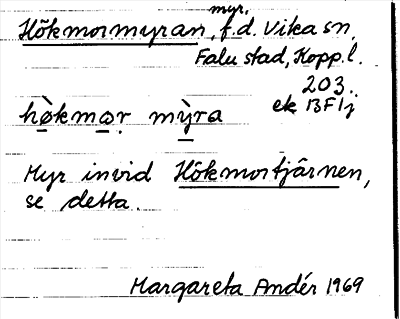 Hökmormyran, myr, f.d. Vika sn,
Falu stad, Kopp.l.
203.
ek 13F1j
hø̀kmo̱ṛ mỳra
Myr invid Hökmortjärnen,
se detta.
Margareta Andér 1969